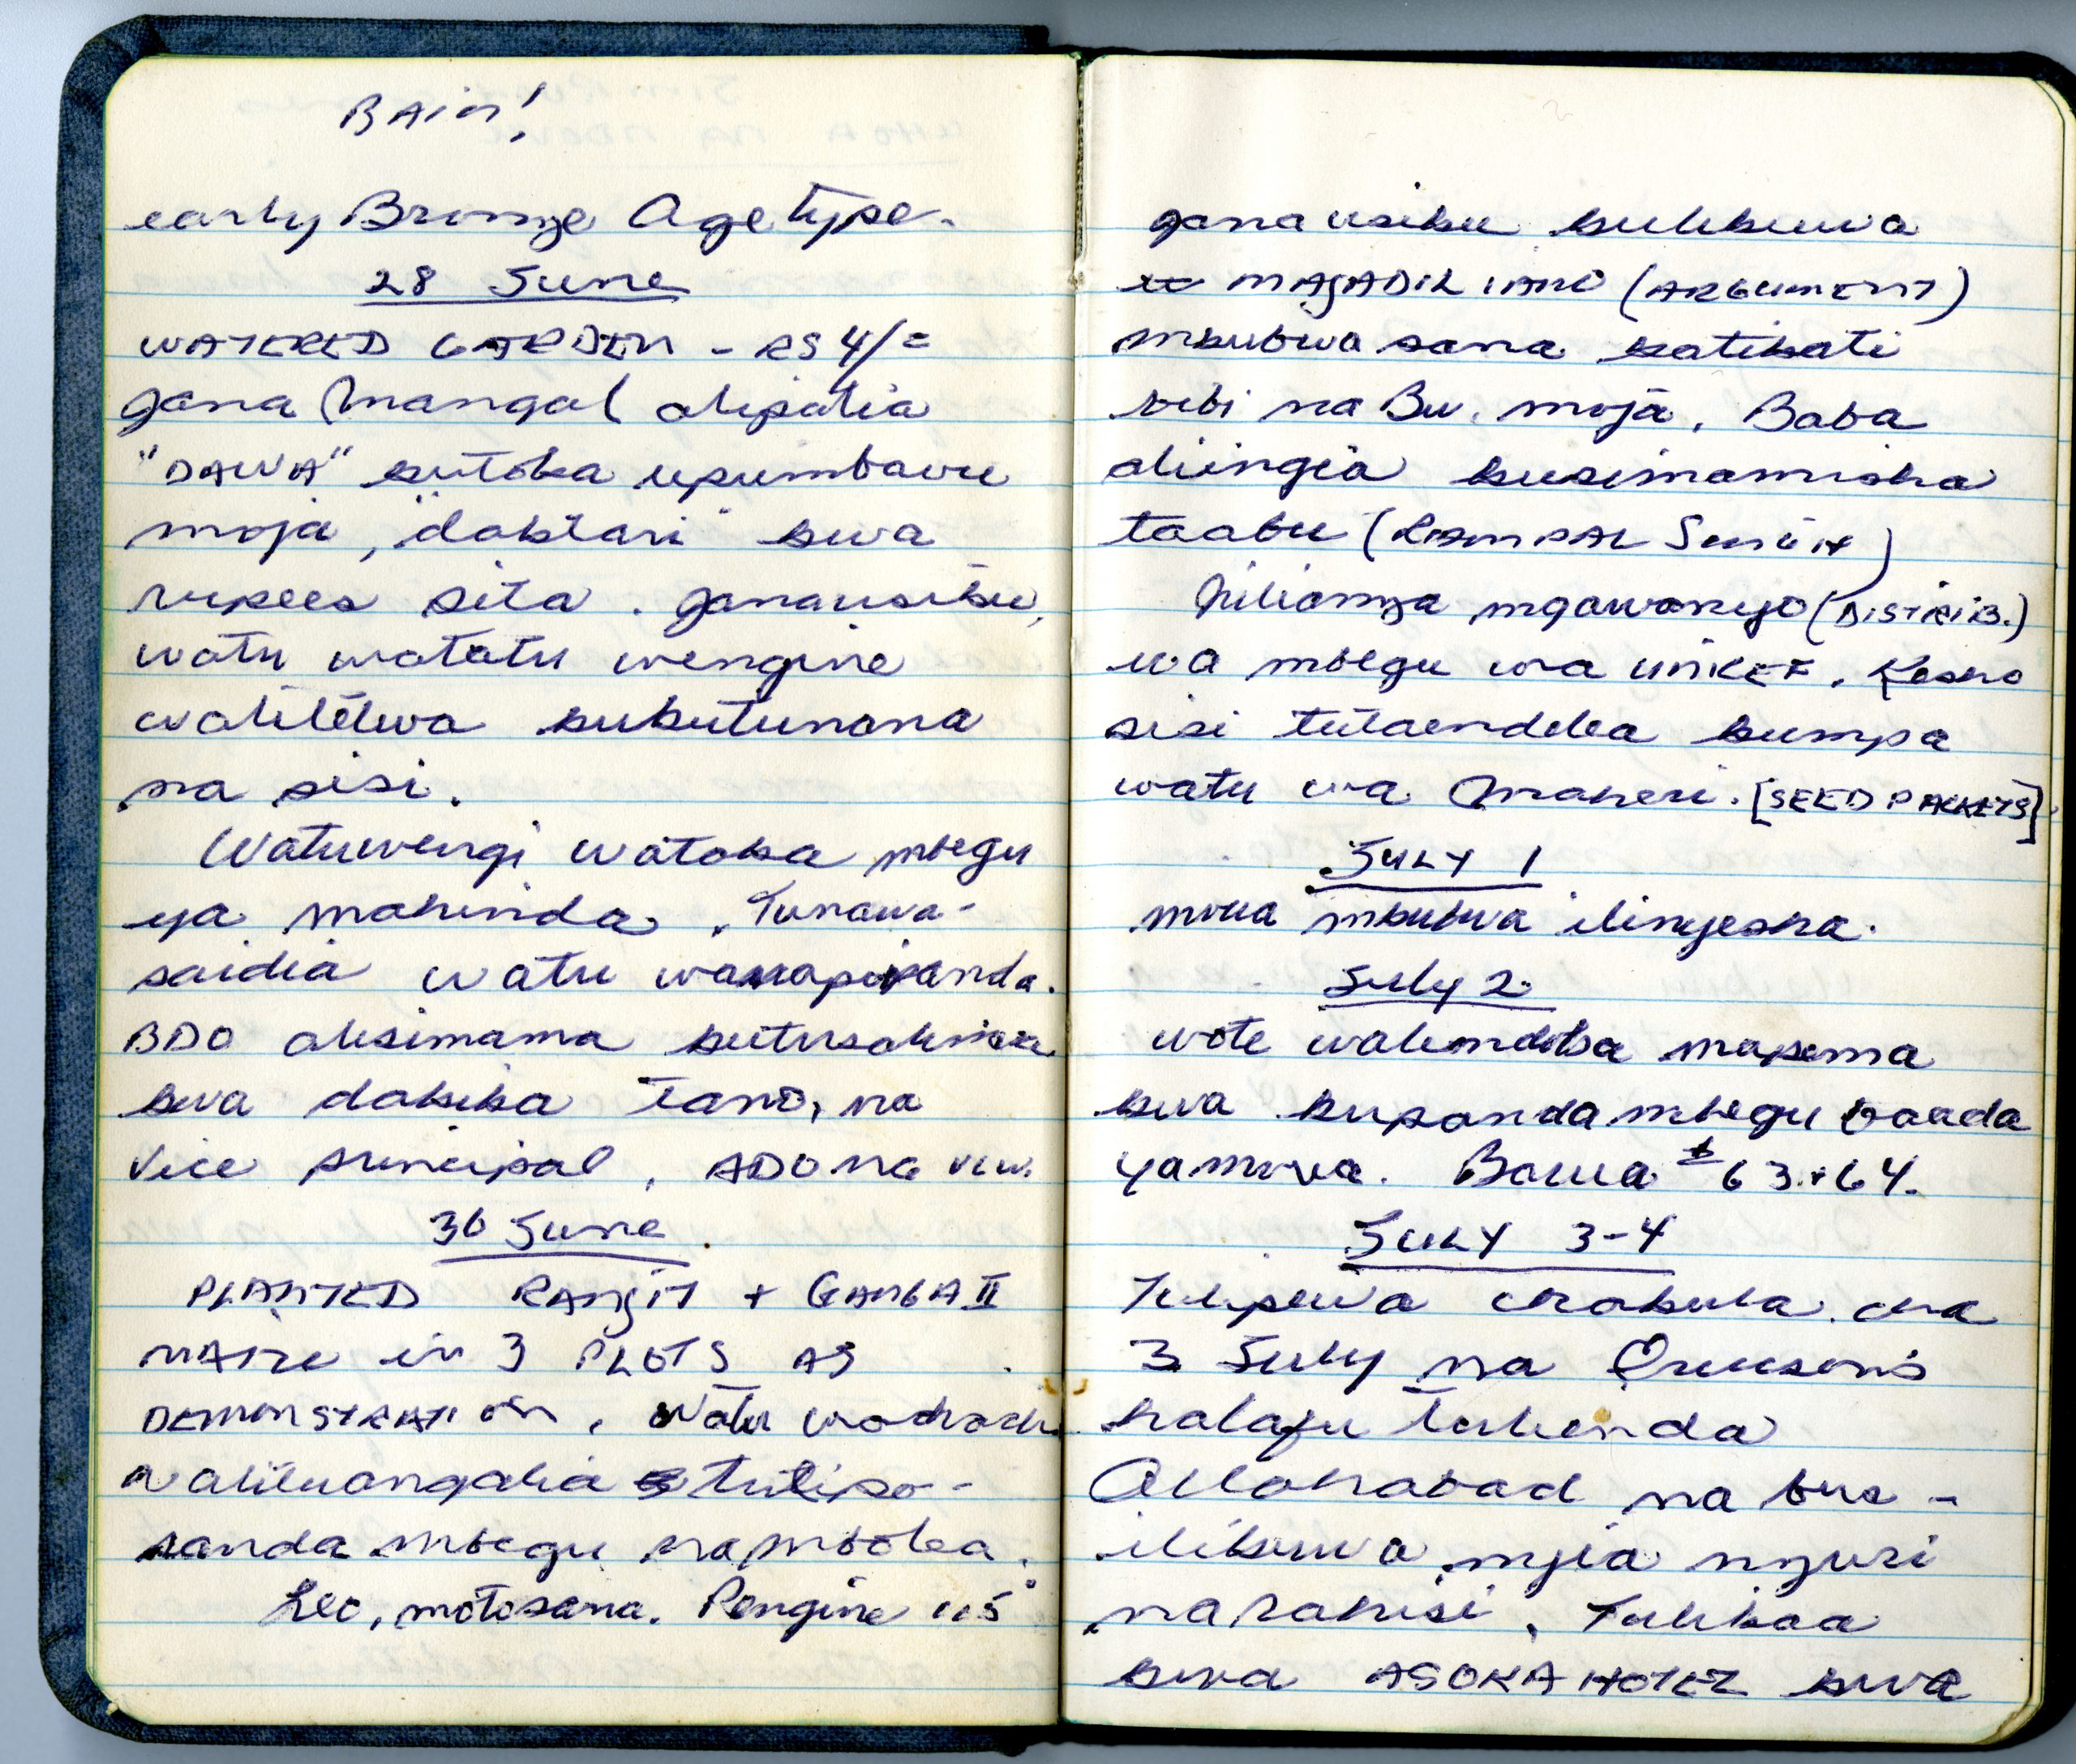 RAIN!
early Bronze Age type.
28 June
WATERED GARDEN - RS 4/=
Jana Mangal alipatia
"DAWA" kutoka upumbavu
moja, "daktari" kwa
rupees sita. Jana usiku,
watu watatu wengine
walitetwa kukutunana
na sisi.
Watu wengi watoka mbegu
ya mahinda. Tunawa-
saidia watu wanapopanda.
BDO alisimama kutusalimia
kwa dakika tano, na
Vice principal, ADO na VLW.
30 June
PLANTED RANJIT + GANGA II
MAIZE in 3 PLOTS AS
DEMONSTRATION. Watu wachache
walituangalia tulipo-
panda mbegu na mbolea.
Leo, moto sana. Pengine 115°
Jana usiku kulikuwa
MAJADILIANO (ARGUMENT)
mkubwa sana katikati
bibi na Bw. moja. Baba
aliingia kusimamisha
taabu (RAMPAL SINGH)
Nilianza mgawanyo (DISTRIB.)
wa mbegu wa UNICEF. Kesho
sisi tutaendelea kumpa
watu wa Maheri. [SEED PACKETS]
JULY 1
mvua mkubwa ilinyesha.
July 2
wote walindoka mapema
kwa kupanda mbegu baada
ya mvua. Barua # 63 + 64.
JULY 3-4
Tulipewa chakula cha
3 July na Ericsons
halafu tulienda
Allahabad na bus -
ilikuwa njia nzuri
na rahisi. Tulikaa
kwa ASOKA HOTEL kwa